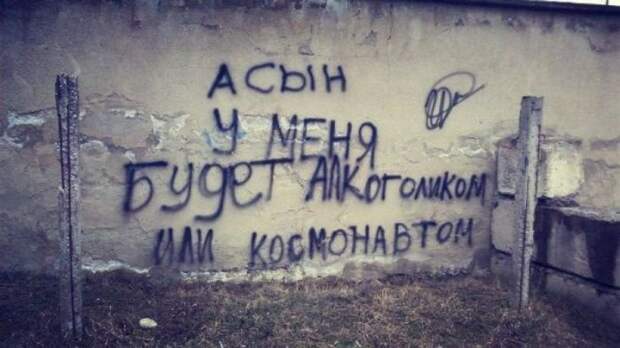 А СЫН
У МЕНЯ
БУДЕТ АЛКОГОЛИКОМ
ИЛИ КОСМОНАВТОМ